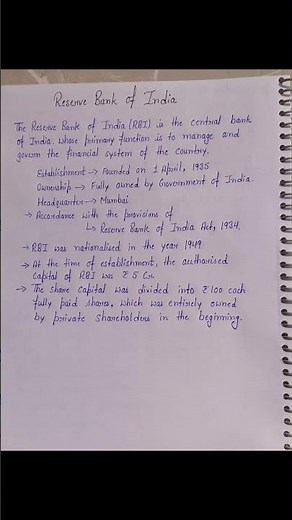 Reserve Bank of India
The Reserve Bank of India (RBI) is the central bank
of India. Whose primary function is to manage and
govern the financial system of the country.
Establishment → Founded on 1 April, 1935
Ownership → Fully owned by Government of India.
Headquarter → Mumbai
→ Accordance with the provisions of
↳ Reserve Bank of India Act, 1934.
→ RBI was nationalised in the year 1949
→ At the time of establishment, the authorised
capital of RBI was ₹ 5 Cr.
→ The share capital was divided into ₹100 each
fully paid shares. which was entirely owned
by private shareholders in the beginning.